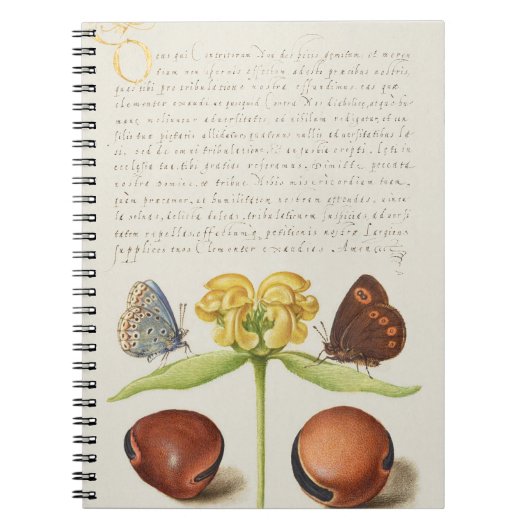 Deus qui Contritorum Non despicis gemitum, et meren
tium non spernis effectum adesto præcibus nostris,
quas pro tribulatione nostra effundimus, eas que
clementer exaudi ut quicquid Contra Nos diabolicæ, atque hu
manæ moliuntur adversitates, ad nihilum redigatur, et con
silio tuæ pietatis allidatur, quatenus nullis adversitatibus læ
si, sed de omni tribulatione, et angustia erepti, læti in
ecclesia tua, tibi gratias referamus, dimitte peccata
nostra domine, et tribue Nobis misericordiam tuam,
quam præcamur, et humilitatem nostram attende, vincu
la solve, delicta dele, tribulationem inspice, adversi
tatem repelle, effectumque petitionis nostræ Largiens
supplices tuos Clementer exaudias Amen